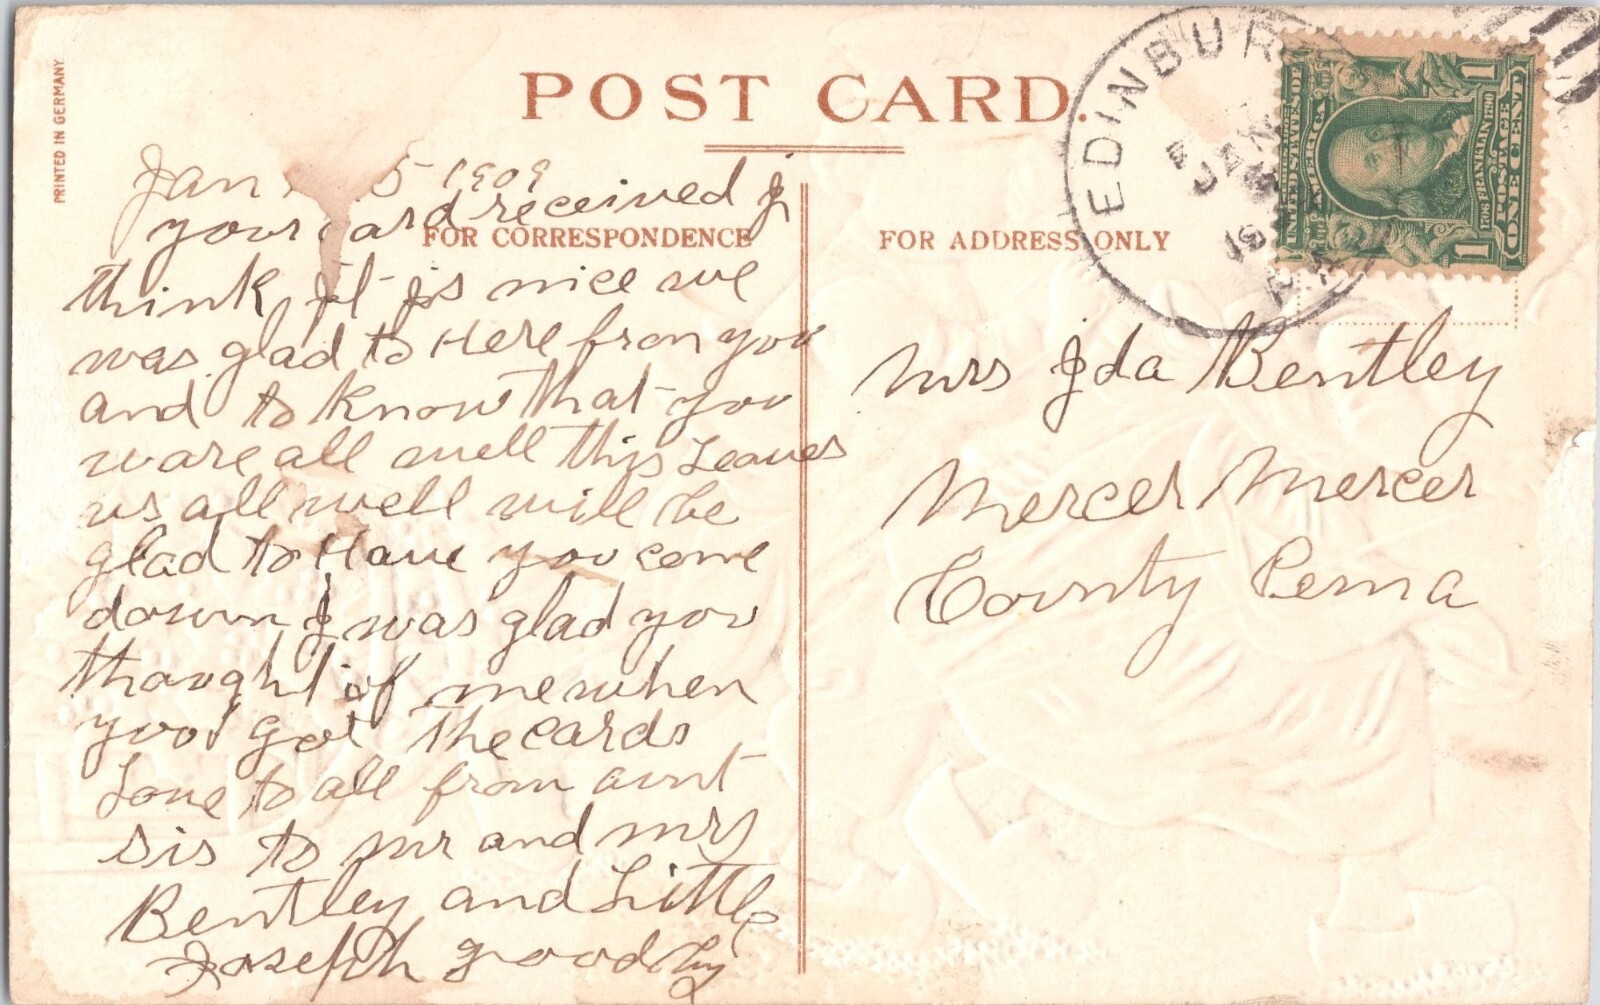 PRINTED IN GERMANY.
POST CARD.
FOR CORRESPONDENCE
FOR ADDRESS ONLY
Jan 5 1909
your card received I
think it is nice we
was glad to Here from you
and to know that you
ware all well this Leaves
us all well will be
glad to Have you come
down I was glad you
thought of me when
you got the cards
Love to all from aunt
sis to mr and mrs
Bentley and Little
Joseph good by
Mrs Ida Bentley
Mercer Mercer
County Penna
EDINBUR
JAN
PA
UNITED STATES OF AMERICA
1706 FRANKLIN 1790
POSTAGE
ONE CENT
1 1